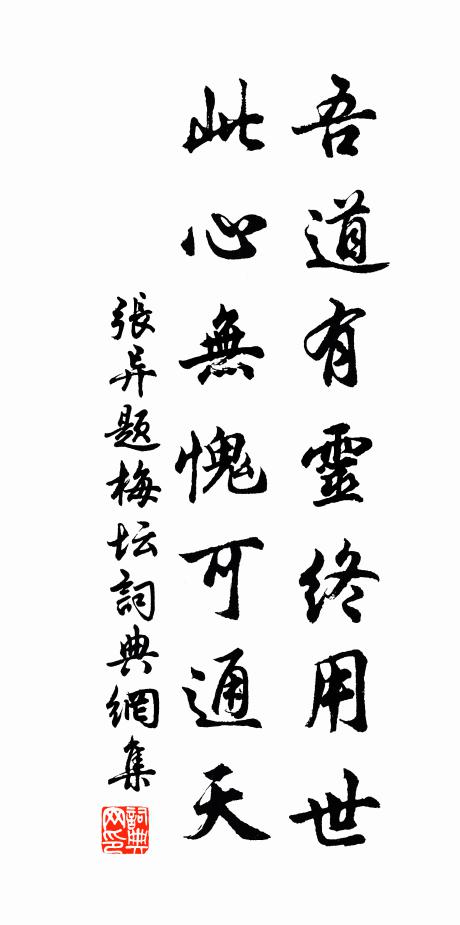 吾道有靈終用世
此心無愧可通天
張异题梅坛詞典網集
詞典网印